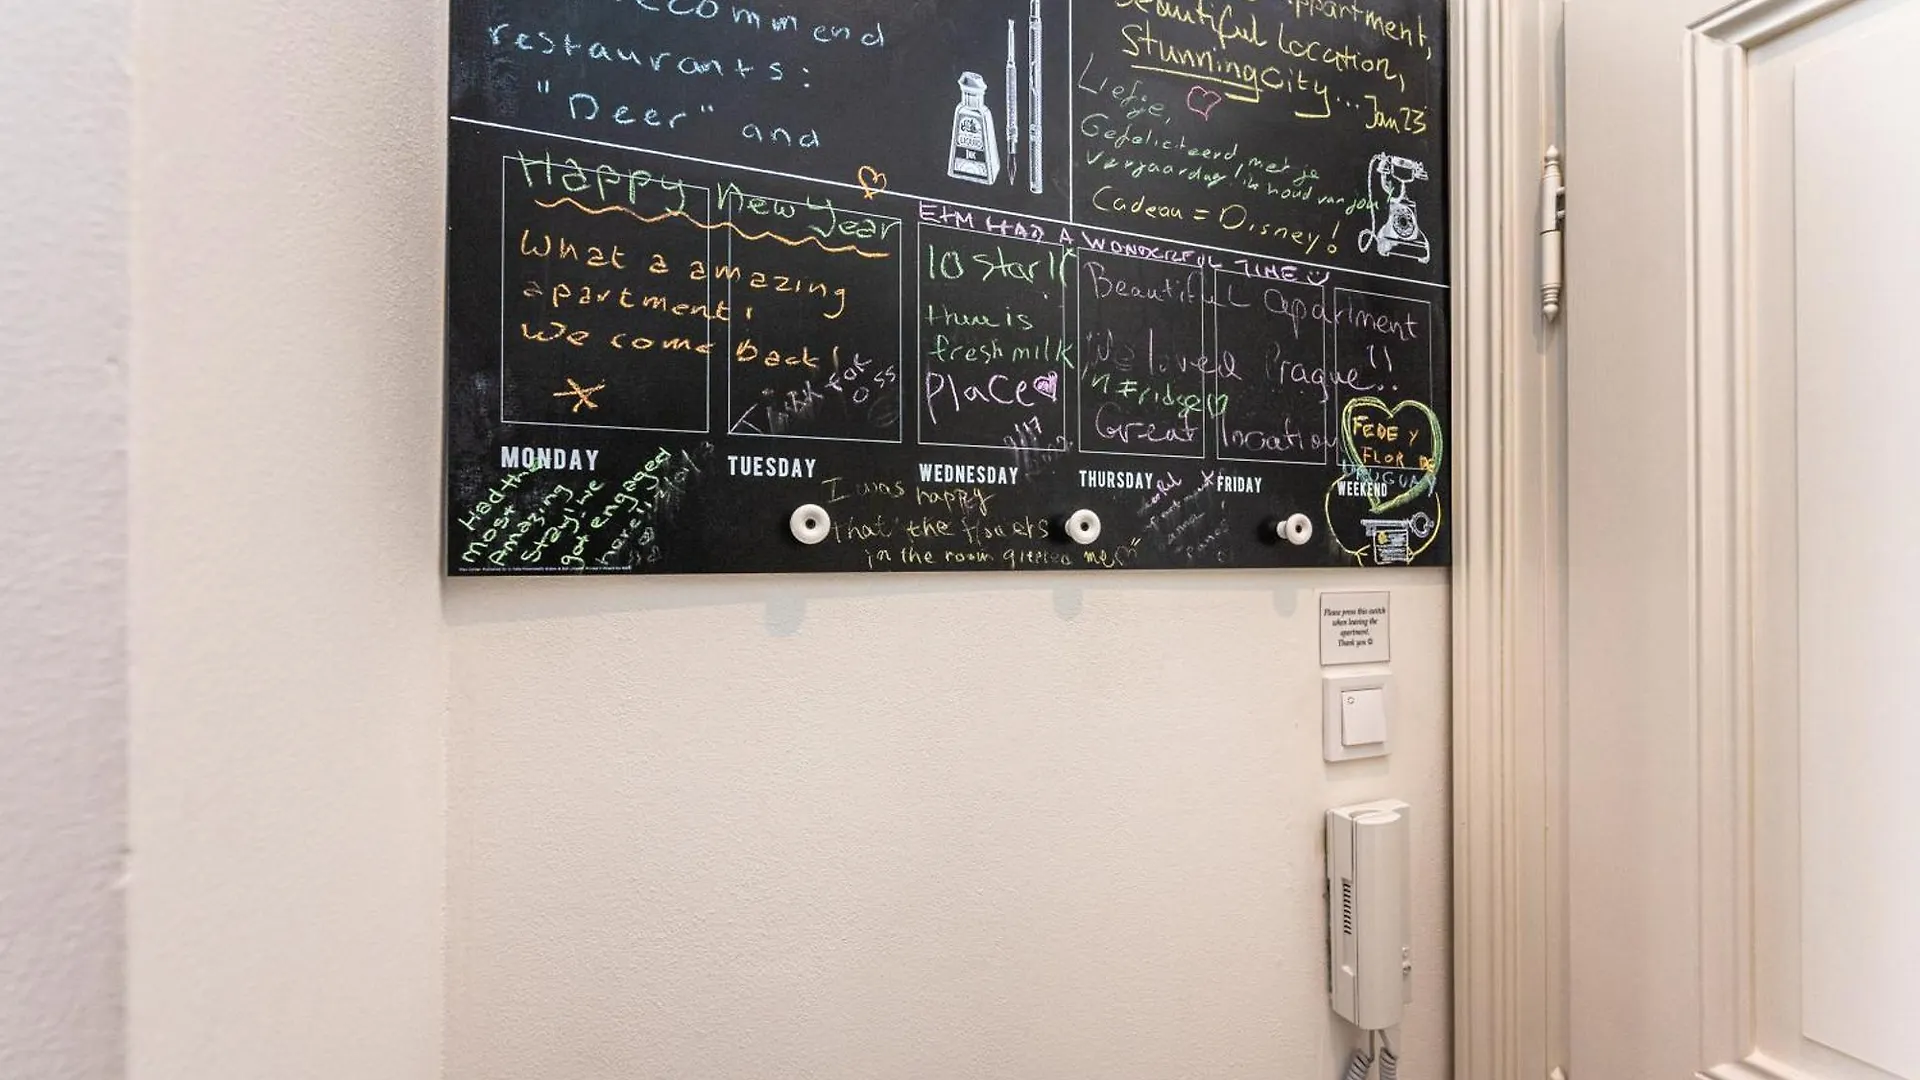 recommend
restaurants:
"Deer" and
appartment,
beautiful location,
stunning city... Jan 23
Liefje,
Gefeliciteerd, met je
verjaardag. ik houd van jou
Cadeau = Disney!
INK
Happy New Year
What a amazing
apartment!
We come back!
E+M HAD A WONDERFUL TIME
10 star!!
there is
fresh milk
in Fridge
Place
Beautiful apartment
We loved Prague!!
Great location
FEDE Y
FLOR DE
URUGUAY
MONDAY
TUESDAY
WEDNESDAY
THURSDAY
FRIDAY
WEEKEND
Had the
most
amazing
stay! we
got engaged
here!!
I was happy
that the flowers
in the room greeted me
Please press this switch
when leaving the
apartment.
Thank you ☺